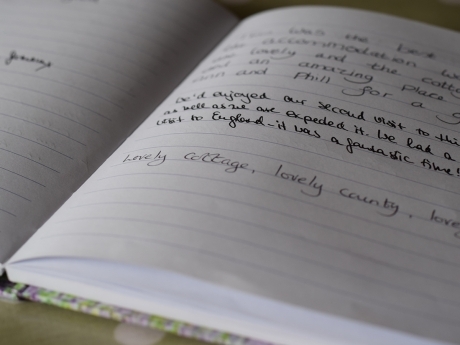 was the best
accommodation
lovely and the cotta
and an amazing place
ann and Phill for a g
We'd enjoyed our second visit to this
as well as we are expeded it. We had a
visit to England - it was a fantastic time!
Lovely cottage, lovely county, love